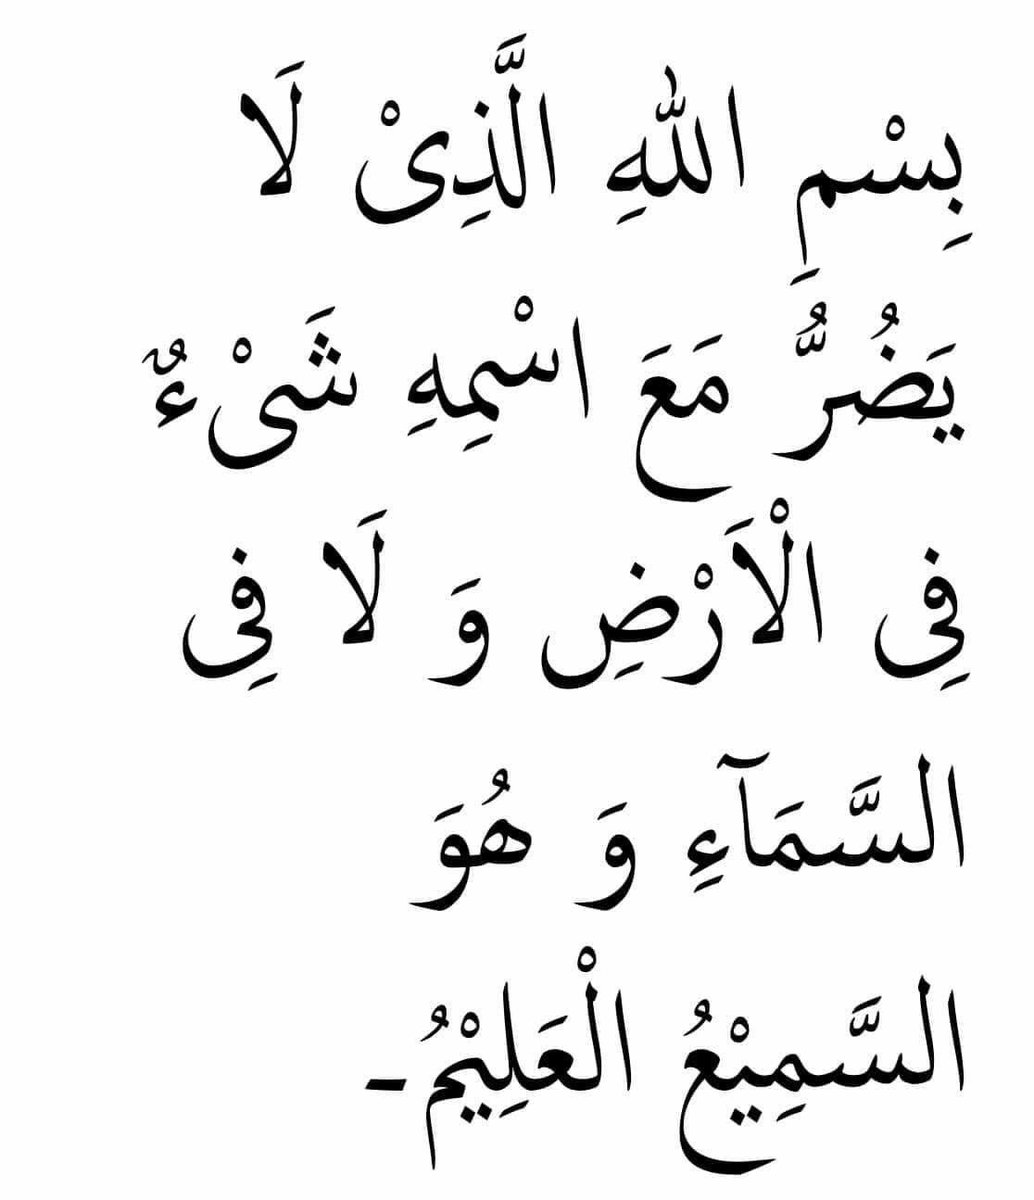 بِسْمِ اللهِ الَّذِىْ لَا
يَضُرُّ مَعَ اسْمِهِ شَىْءٌ
فِى الْاَرْضِ وَ لَا فِى
السَّمَآءِ وَ هُوَ
السَّمِيْعُ الْعَلِيْمُ-